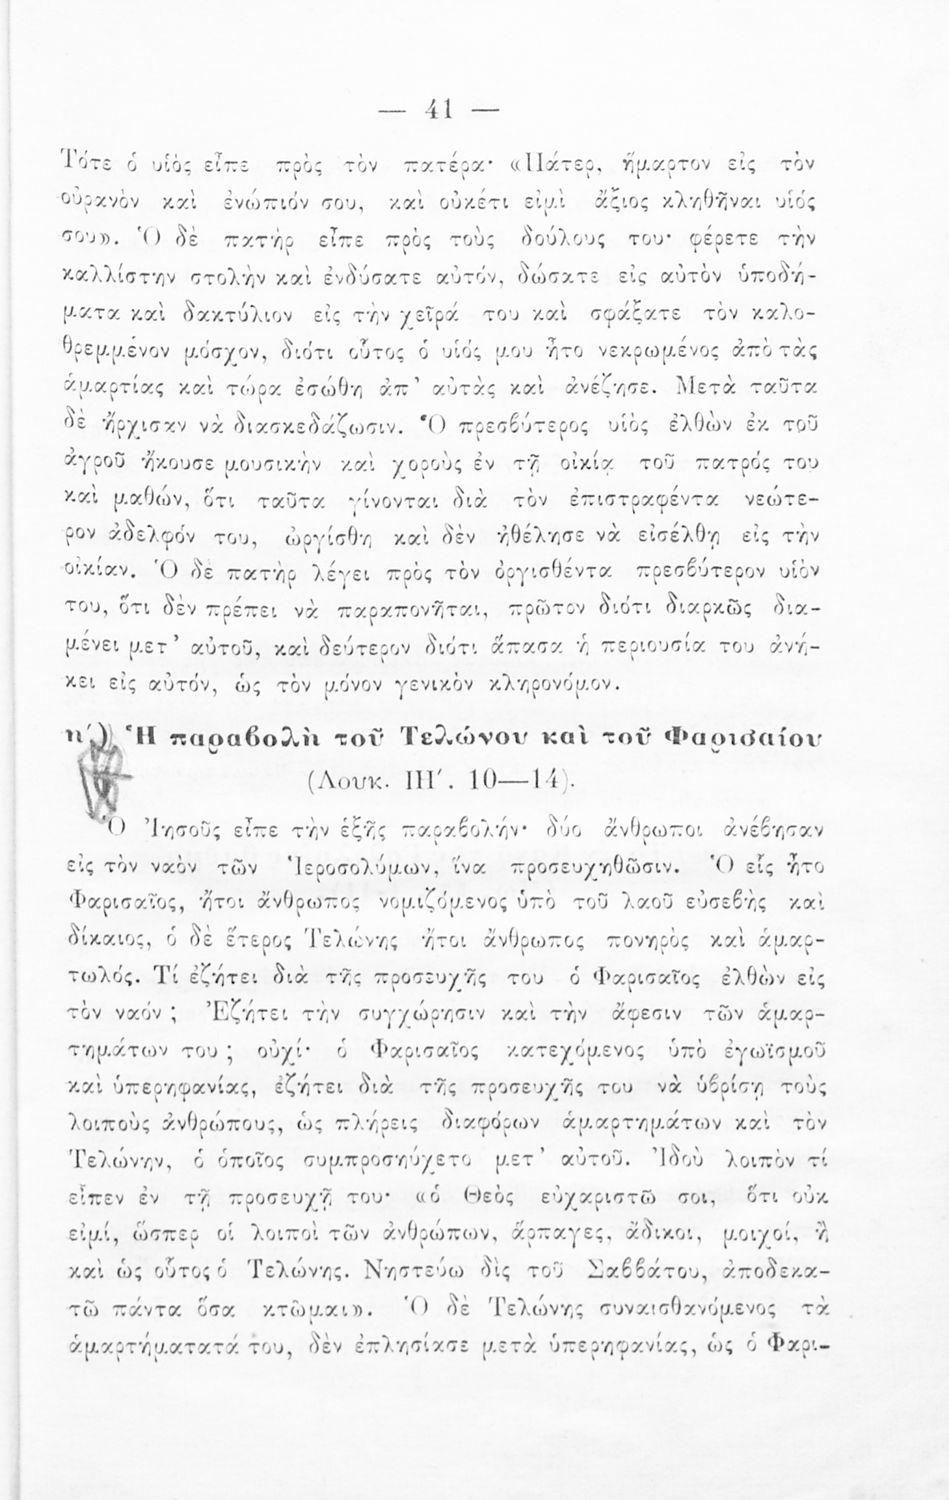 — 41 —
Τότε ὁ υἱὸς εἶπε πρὸς τὸν πατέρα· «Πάτερ, ἥμαρτον εἰς τὸν
οὐρανὸν καὶ ἐνώπιόν σου, καὶ οὐκέτι εἰμὶ ἄξιος κληθῆναι υἱός
σου». Ὁ δὲ πατὴρ εἶπε πρὸς τοὺς δούλους του· φέρετε τὴν
καλλίστην στολὴν καὶ ἐνδύσατε αὐτόν, δώσατε εἰς αὐτὸν ὑποδή-
ματα καὶ δακτύλιον εἰς τὴν χεῖρά του καὶ σφάξατε τὸν καλο-
θρεμμένον μόσχον, διότι οὗτος ὁ υἱός μου ἦτο νεκρωμένος ἀπὸ τὰς
ἁμαρτίας καὶ τώρα ἐσώθη ἀπ’ αὐτὰς καὶ ἀνέζησε. Μετὰ ταῦτα
δὲ ἤρχισαν νὰ διασκεδάζωσιν. Ὁ πρεσβύτερος υἱὸς ἐλθὼν ἐκ τοῦ
ἀγροῦ ἤκουσε μουσικὴν καὶ χοροὺς ἐν τῇ οἰκίᾳ τοῦ πατρός του
καὶ μαθών, ὅτι ταῦτα γίνονται διὰ τὸν ἐπιστραφέντα νεώτε-
ρον ἀδελφόν του, ὠργίσθη καὶ δὲν ἠθέλησε νὰ εἰσέλθῃ εἰς τὴν
οἰκίαν. Ὁ δὲ πατὴρ λέγει πρὸς τὸν ὀργισθέντα πρεσβύτερον υἱὸν
του, ὅτι δὲν πρέπει νὰ παραπονῆται, πρῶτον διότι διαρκῶς δια-
μένει μετ’ αὐτοῦ, καὶ δεύτερον διότι ἅπασα ἡ περιουσία του ἀνή-
κει εἰς αὐτόν, ὡς τὸν μόνον γενικὸν κληρονόμον.
η΄) Ἡ παραβολὴ τοῦ Τελώνου καὶ τοῦ Φαρισαίου
(Λουκ. ΙΗ΄. 10—14).
Ὁ Ἰησοῦς εἶπε τὴν ἑξῆς παραβολήν· δύο ἄνθρωποι ἀνέβησαν
εἰς τὸν ναὸν τῶν Ἱεροσολύμων, ἵνα προσευχηθῶσιν. Ὁ εἷς ἦτο
Φαρισαῖος, ἤτοι ἄνθρωπος νομιζόμενος ὑπὸ τοῦ λαοῦ εὐσεβὴς καὶ
δίκαιος, ὁ δὲ ἕτερος Τελώνης ἤτοι ἄνθρωπος πονηρὸς καὶ ἁμαρ-
τωλός. Τί ἐζήτει διὰ τῆς προσευχῆς του ὁ Φαρισαῖος ἐλθὼν εἰς
τὸν ναόν ; Ἐζήτει τὴν συγχώρησιν καὶ τὴν ἄφεσιν τῶν ἁμαρ-
τημάτων του ; οὐχί· ὁ Φαρισαῖος κατεχόμενος ὑπὸ ἐγωϊσμοῦ
καὶ ὑπερηφανίας, ἐζήτει διὰ τῆς προσευχῆς του νὰ ὑβρίσῃ τοὺς
λοιποὺς ἀνθρώπους, ὡς πλήρεις διαφόρων ἁμαρτημάτων καὶ τὸν
Τελώνην, ὁ ὁποῖος συμπροσηύχετο μετ’ αὐτοῦ. Ἰδοὺ λοιπὸν τί
εἶπεν ἐν τῇ προσευχῇ του· «ὁ Θεὸς εὐχαριστῶ σοι, ὅτι οὐκ
εἰμί, ὥσπερ οἱ λοιποὶ τῶν ἀνθρώπων, ἅρπαγες, ἄδικοι, μοιχοί, ἢ
καὶ ὡς οὗτος ὁ Τελώνης. Νηστεύω δὶς τοῦ Σαββάτου, ἀποδεκα-
τῶ πάντα ὅσα κτῶμαι». Ὁ δὲ Τελώνης συναισθανόμενος τὰ
ἁμαρτήματατά του, δὲν ἐπλησίασε μετὰ ὑπερηφανίας, ὡς ὁ Φαρι-